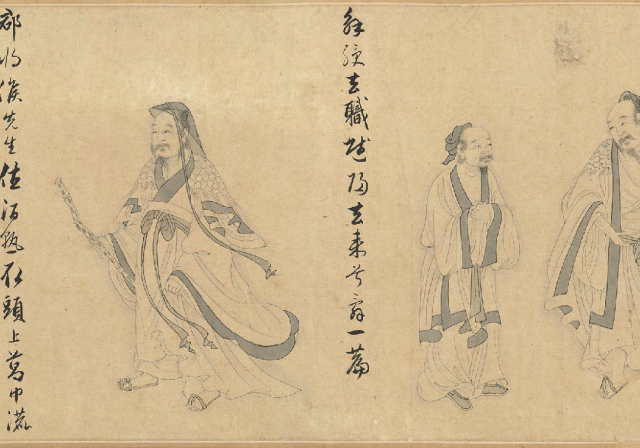 解綬去職賦歸去來兮辭一篇
郡將候先生值酒熟取頭上葛巾漉